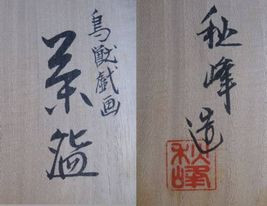 鳥獣戯画
茶碗
秋峰造
秋峰